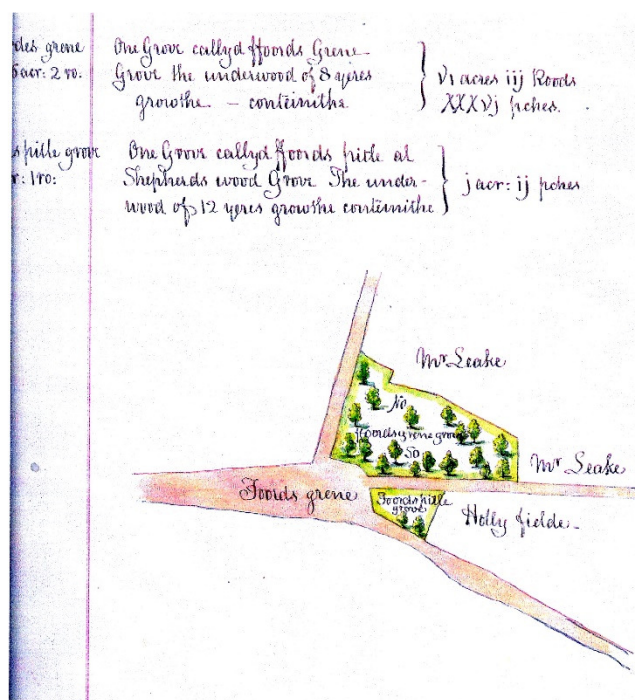 des grene
acr: 2 ro.
One Grove callyd ffoords Grene
Grove the underwood of 8 yeres
growthe - conteinithe
vi acres iij Roods
XXXvj pches.
s pitle grove
r: 1 ro:
One Grove callyd ffoords pitle at
Shepherds wood Grove The under-
wood of 12 yeres growthe conteinithe
j acr: ij pches
Mr Leake
No
ffoords grene grove
So
Mr Leake
Foords grene
Foords pitle
grove
Holly fielde -